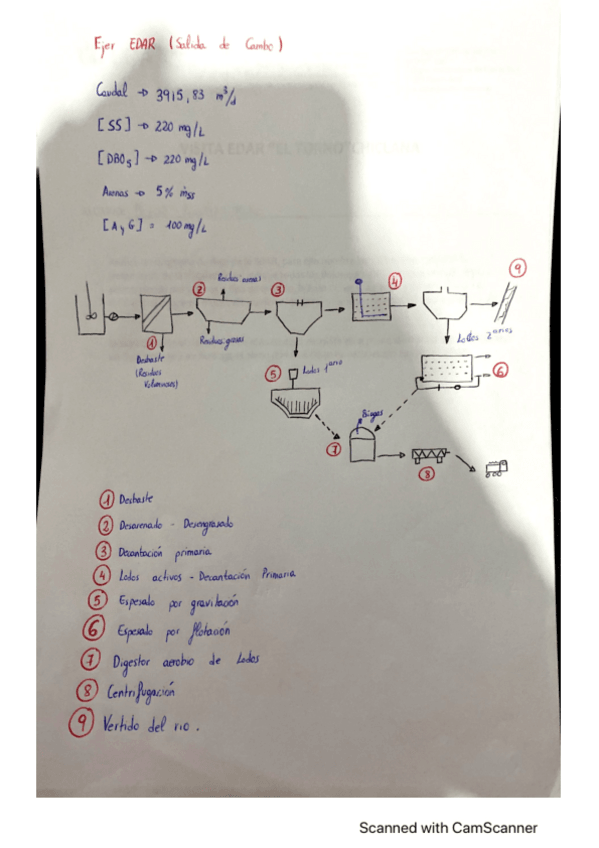 Ejer EDAR (Salida de Campo)
Caudal → 3915,83 m³/d
[SS] → 220 mg/L
[DBO₅] → 220 mg/L
Arenas → 5% mss
[A y G] = 100 mg/L
9
2
Residuo arenas
3
4
1
Residuo grasas
Desbaste
(Residuos
Voluminosos)
5
Lodos 1ario
Lodos 2arios
6
Biogas
7
8
1 Desbaste
2 Desarenado - Desengrasado
3 Decantación primaria
4 Lodos activos - Decantación Primaria
5 Espesado por gravitación
6 Espesado por flotación
7 Digestor aerobio de Lodos
8 Centrifugación
9 Vertido del rio.
Scanned with CamScanner